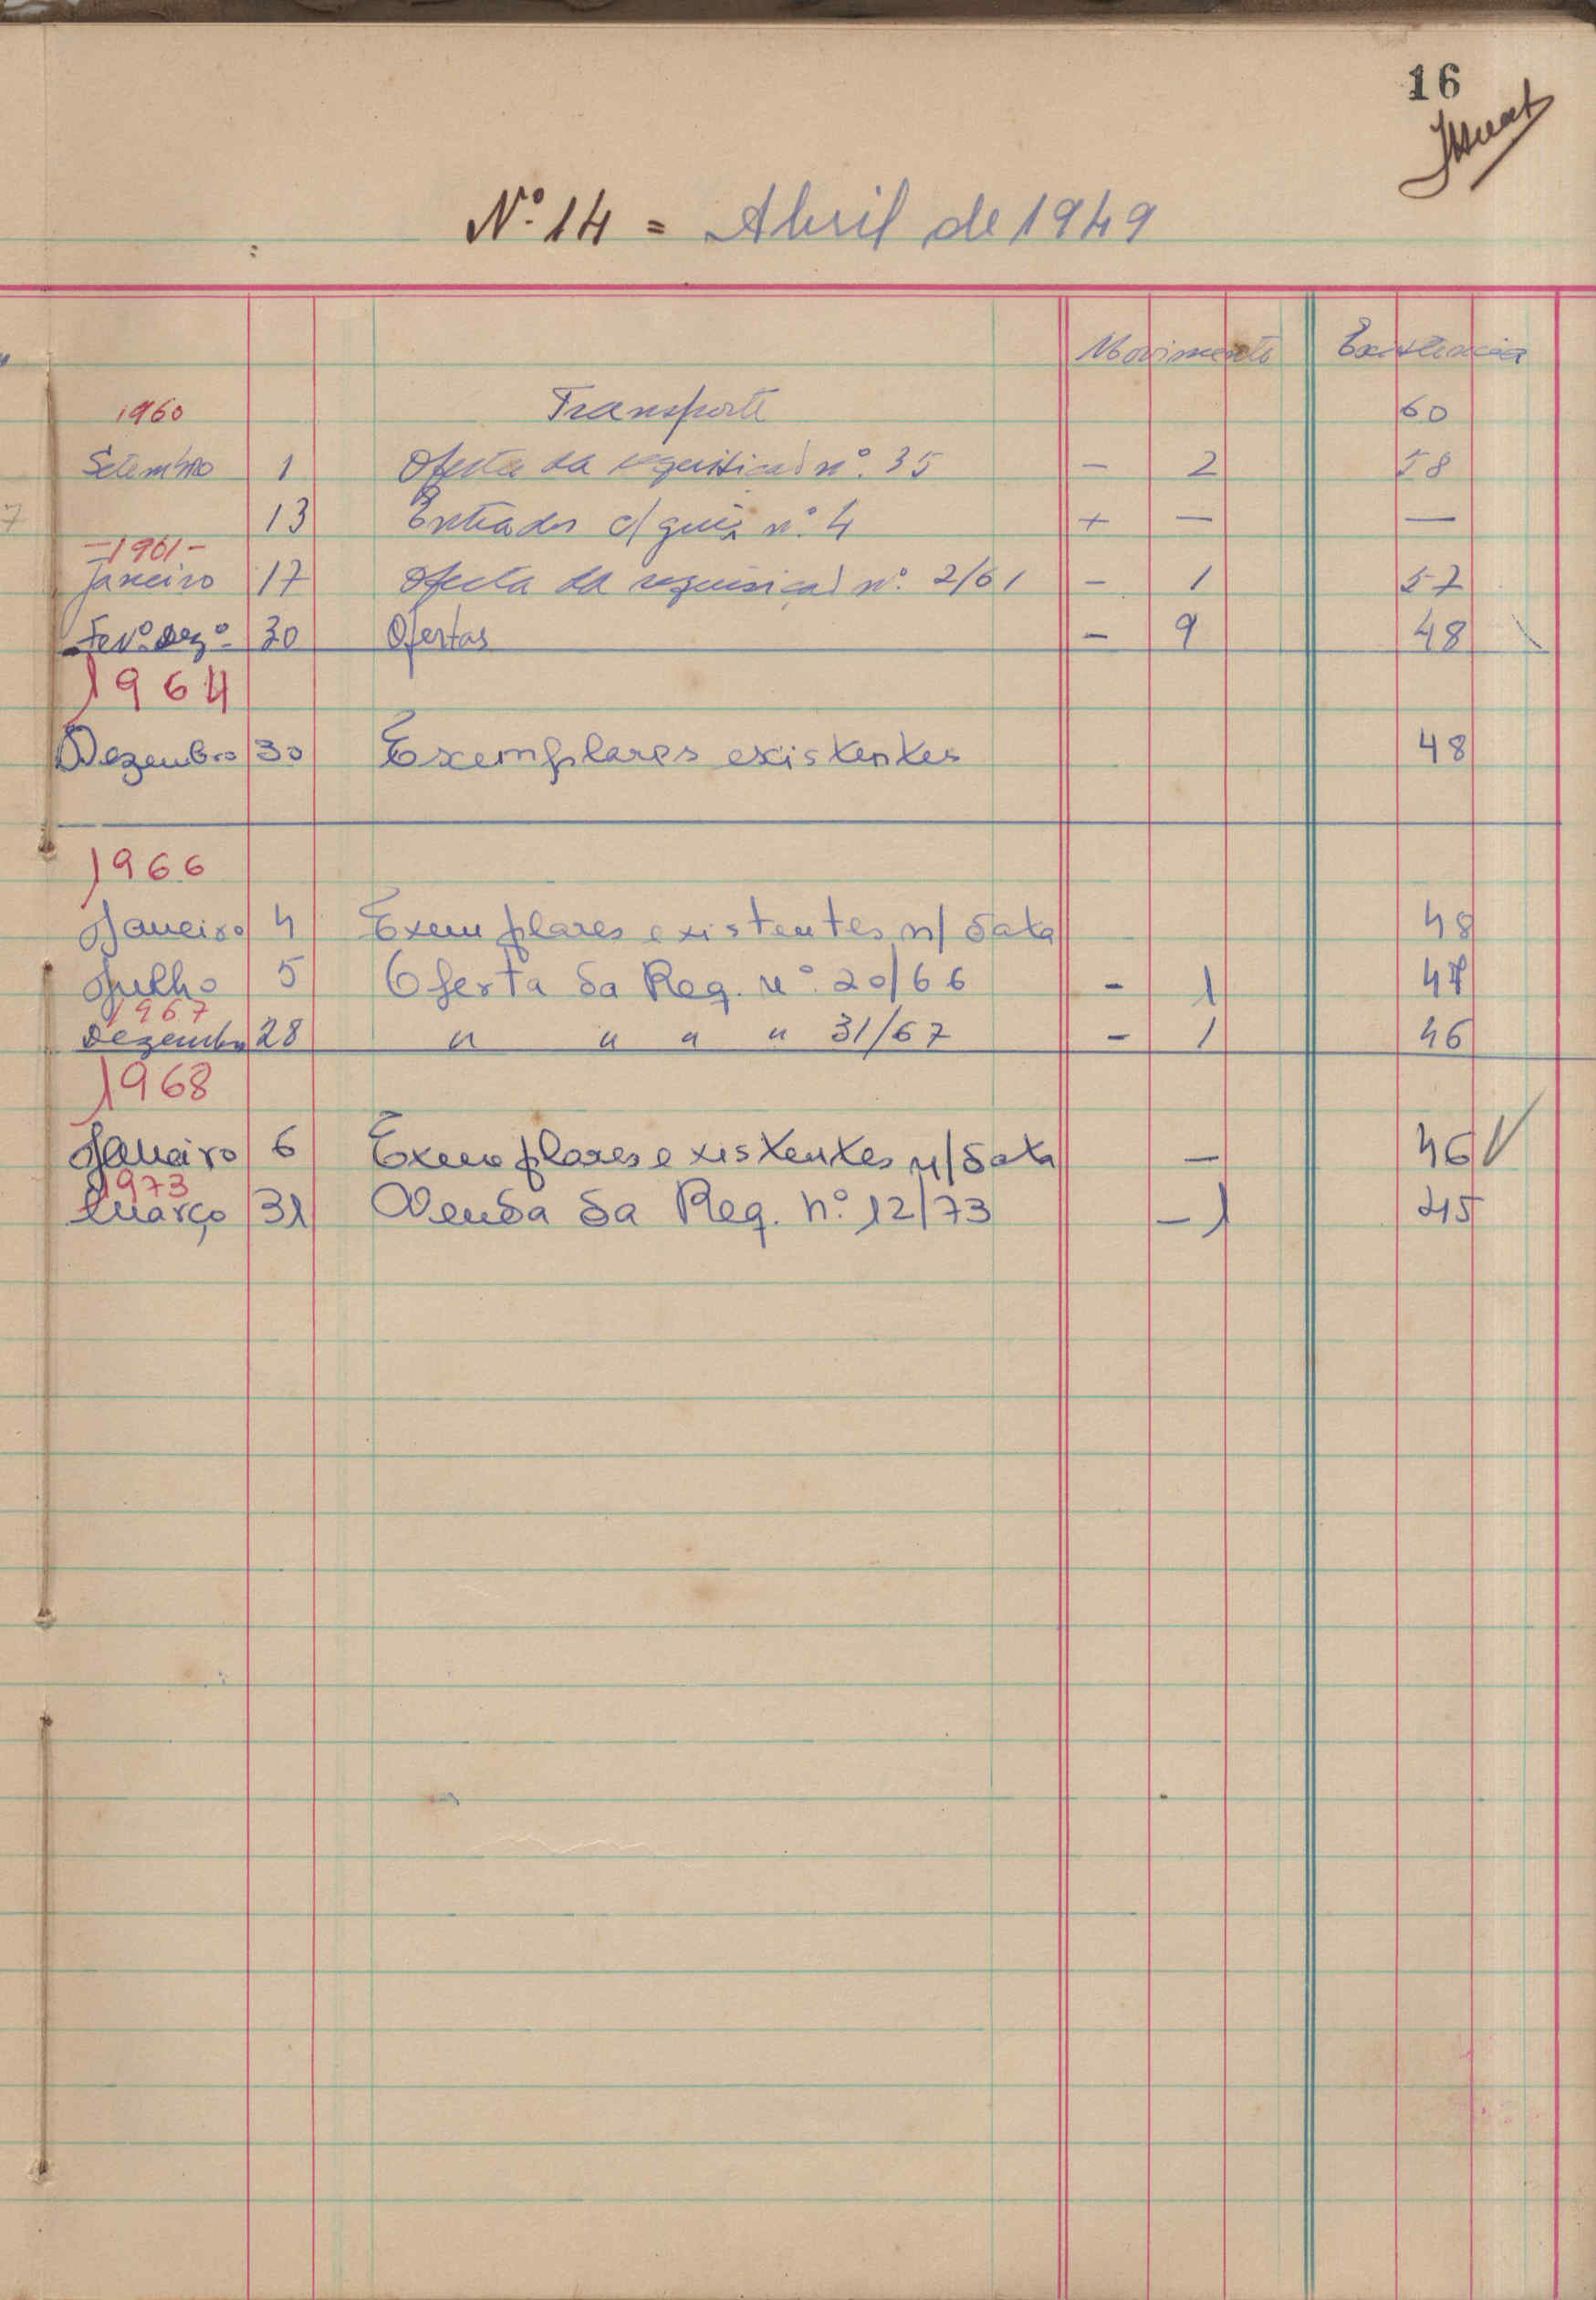 16
Nº 14 = Abril de 1949
Movimento Existencia
1960 Transporte 60
Setembro 1 Oferta da requisição nº. 35 - 2 58
13 Entrados c/ guia nº. 4 + — —
-1961-
Janeiro 17 Oferta da requisição nº. 2/61 - 1 57
Fevº. Dezº. 30 Ofertas - 9 48
1964
Dezembro 30 Exemplares existentes 48
1966
Janeiro 4 Exemplares existentes n/ data 48
Julho 5 Oferta da Req. nº. 20/66 - 1 47
1967
Dezembro 28 " " " " 31/67 - 1 46
1968
Janeiro 6 Exemplares existentes n/ data — 46
1973
Março 31 Venda da Req. nº. 12/73 - 1 45